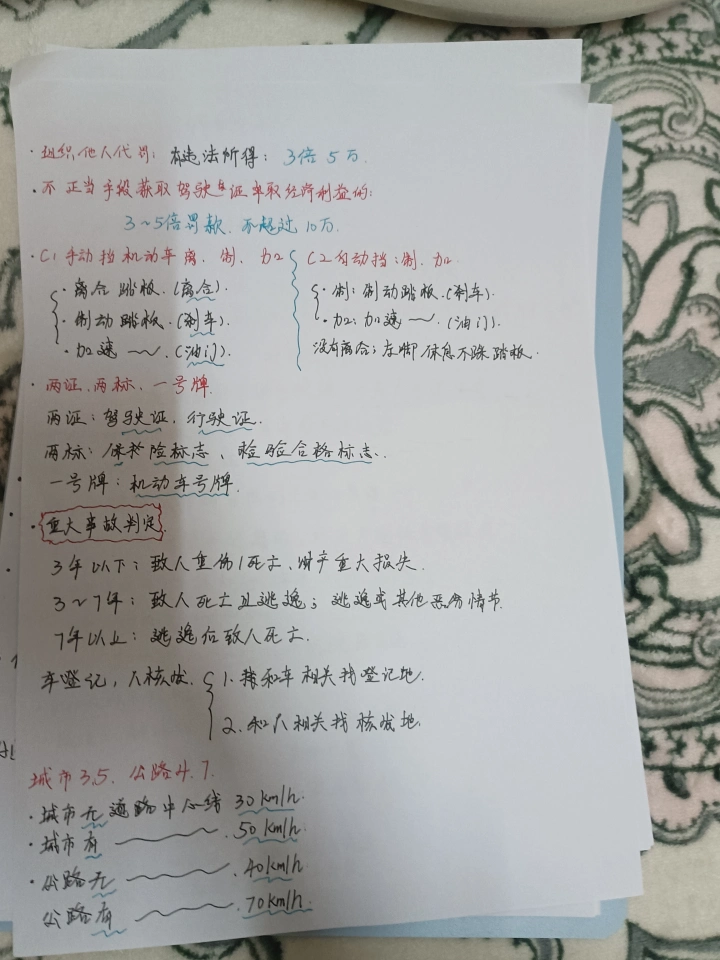 ·组织他人代罚：有违法所得：3倍 5万.
·不正当手段获取驾驶证牟取经济利益的：
3~5倍罚款.不超过10万.
·C1手动挡机动车 离、制、加
·离合踏板.(离合).
·制动踏板.(刹车).
·加速 〜.(油门).
C2自动挡：制、加
·制：制动踏板.(刹车).
·加：加速 〜.(油门).
没有离合；左脚休息不踩踏板.
·两证、两标、一号牌.
两证：驾驶证、行驶证.
两标：保险标志、检验合格标志、
一号牌：机动车号牌.
·重大事故判定.
3年以下：致人重伤/死亡、财产重大损失.
3~7年：致人死亡且逃逸；逃逸或其他恶劣情节.
7年以上：逃逸后致人死亡.
车登记，人核发.
1.和车相关找登记地.
2.和人相关找核发地.
城市3.5.公路4.7.
·城市无道路中心线 30km/h.
·城市有 —— 50km/h.
·公路无 —— 40km/h
公路有 —— 70km/h.